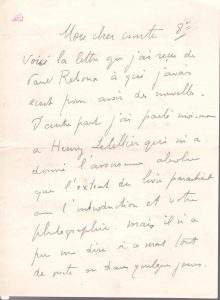 Mon cher comte
Voici la lettre que j'ai reçue de
Paul Reboux à qui j'avais
écrit pour avoir des nouvelles.
D'autre part j'ai parlé moi-même
à Henry Lebellier qui m'a
donné l'assurance absolue
que l'extrait du livre paraîtrait
avec l'introduction et votre
photographie. Mais il n'a
pu me dire si ce serait tout
de suite ou dans quelques jours.